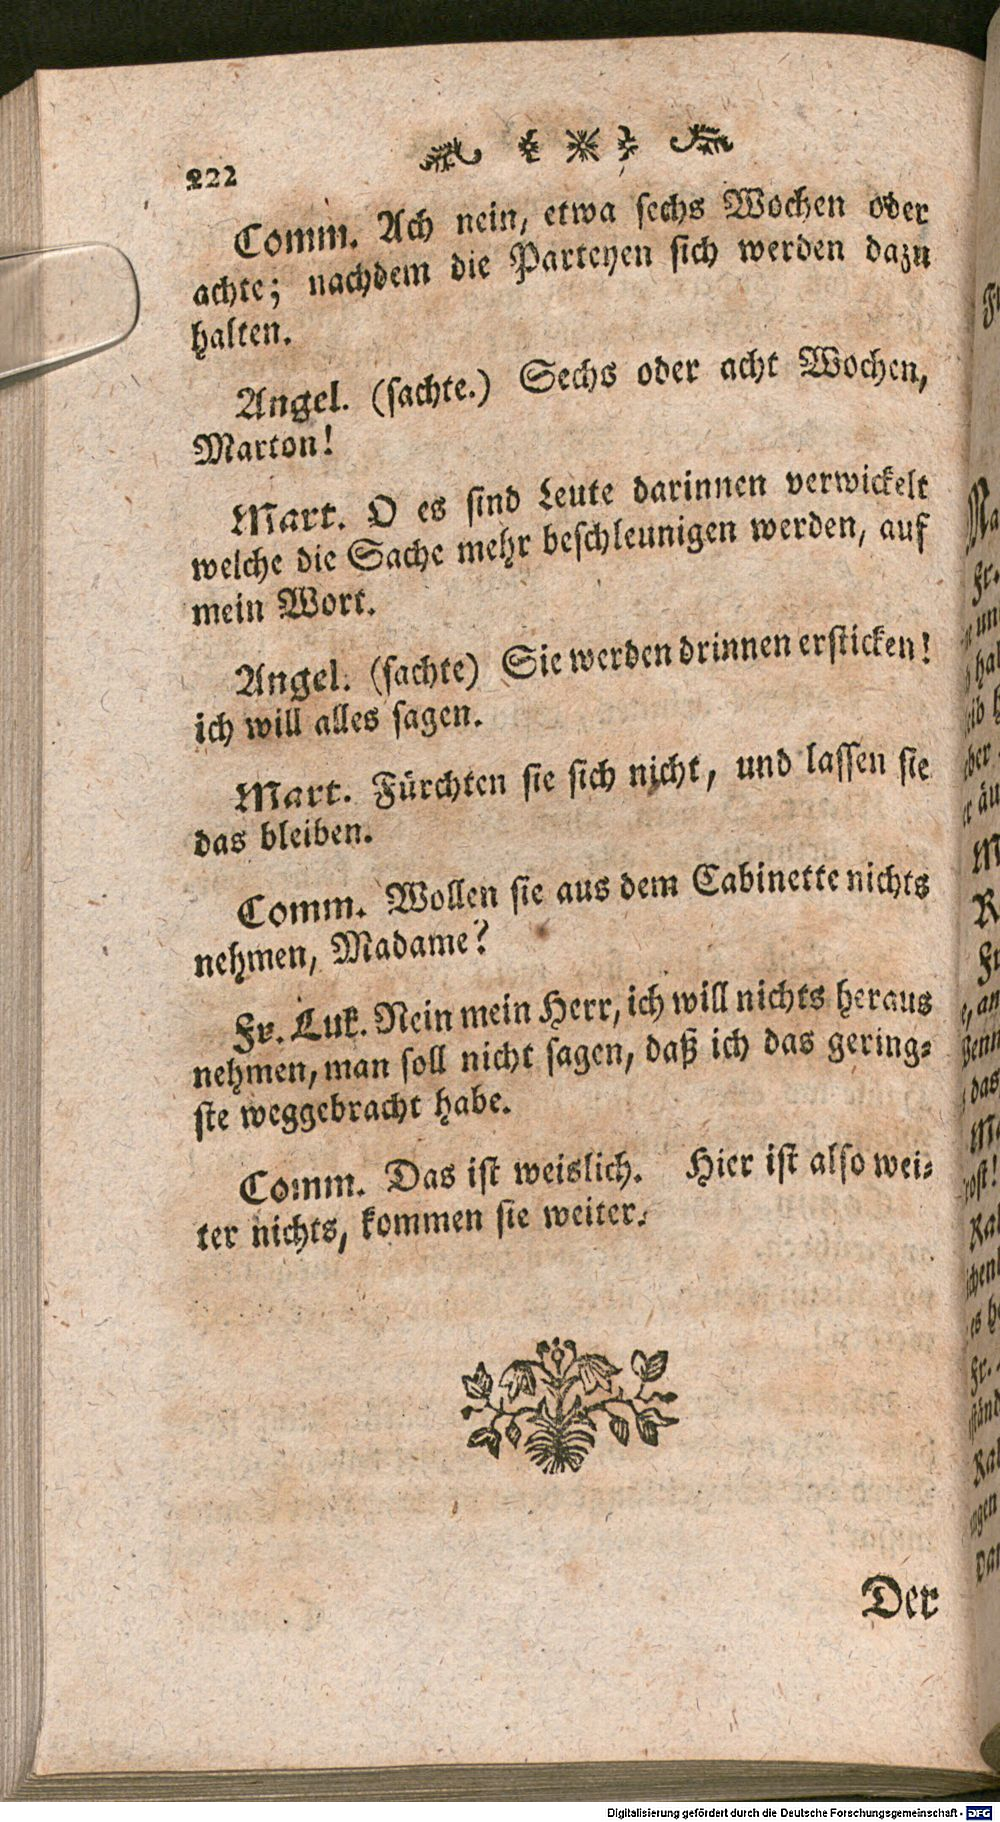 222
Comm. Ach nein, etwa sechs Wochen oder
achte; nachdem die Parteyen sich werden dazu
halten.
Angel. (sachte.) Sechs oder acht Wochen,
Marton!
Mart. O es sind Leute darinnen verwickelt
welche die Sache mehr beschleunigen werden, auf
mein Wort.
Angel. (sachte) Sie werden drinnen ersticken!
ich will alles sagen.
Mart. Fürchten sie sich nicht, und lassen sie
das bleiben.
Comm. Wollen sie aus dem Cabinette nichts
nehmen, Madame?
Fr. Luk. Nein mein Herr, ich will nichts heraus
nehmen, man soll nicht sagen, daß ich das gering-
ste weggebracht habe.
Comm. Das ist weislich. Hier ist also wei-
ter nichts, kommen sie weiter.
Der
Digitalisierung gefördert durch die Deutsche Forschungsgemeinschaft - DFG